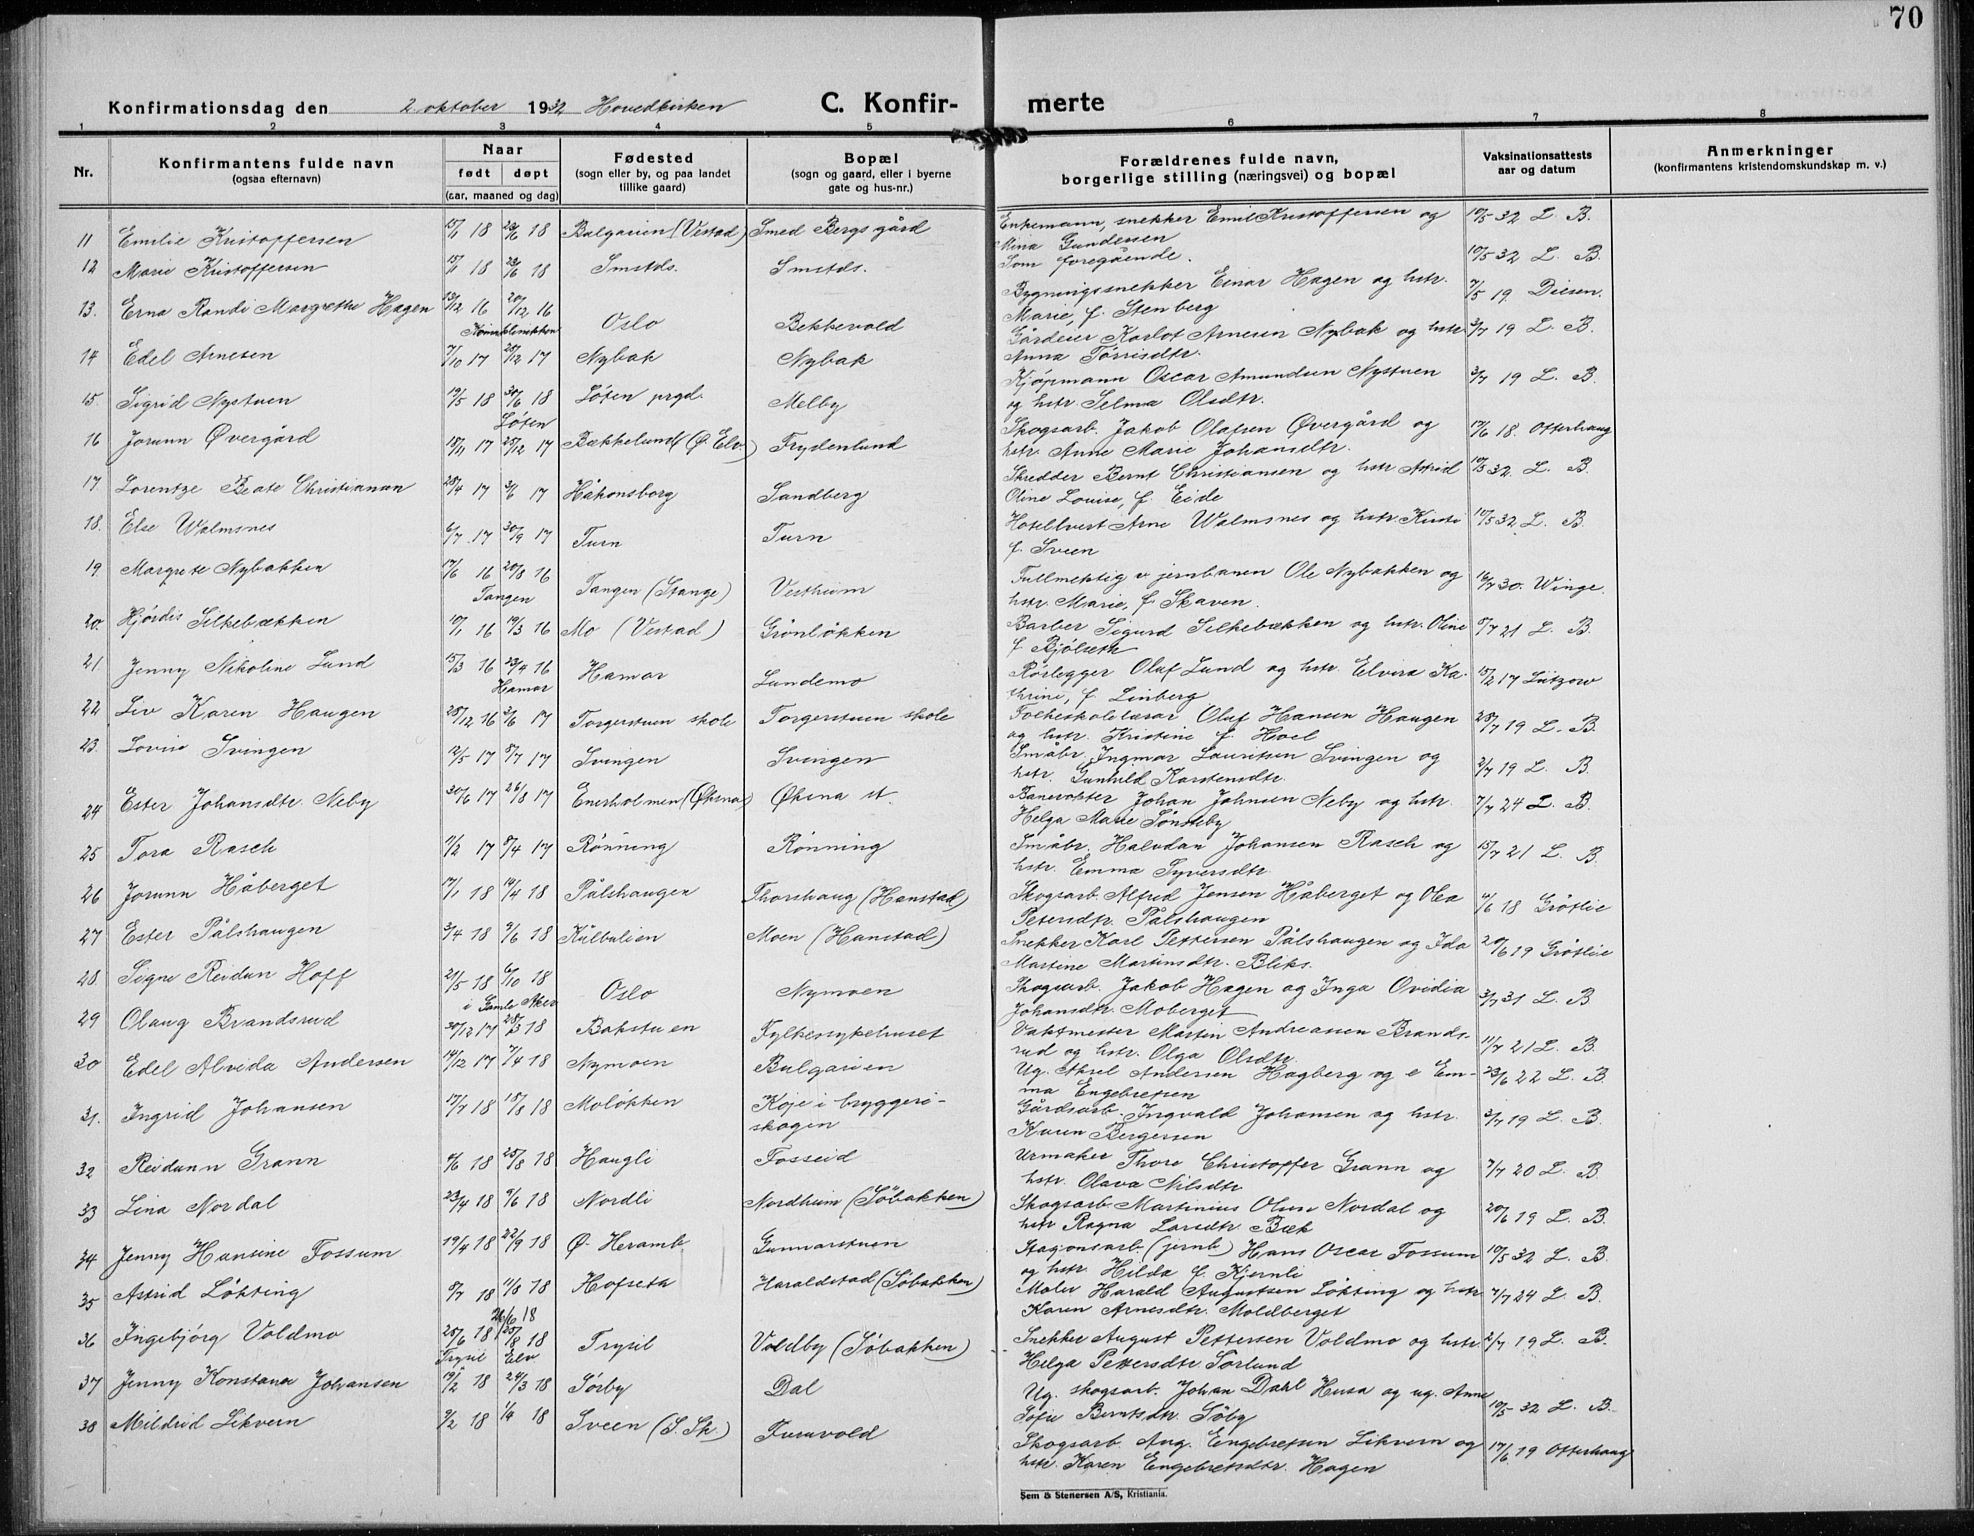 70
Konfirmationsdag den 2 oktober 1932 Hovedkirken C. Konfir- merte
1 2 3 4 5 6 7 8
Nr. Konfirmantens fulde navn (ogsaa efternavn) Naar født døpt (aar, maaned og dag) Fødested (sogn eller by, og paa landet tillike gaard) Bopæl (sogn og gaard, eller i byerne gate og hus-nr.) Forældrenes fulde navn, borgerlige stilling (næringsvei) og bopæl Vaksinationsattests aar og datum Anmerkninger (konfirmantens kristendomskundskap m. v.)
11 Emilie Kristoffersen 15/1 18 23/6 18 Bulgarien (Vestad) Smed Bergs gård Enkemann, snekker Emil Kristoffersen og 10/5 32 L. B.
Mina Gundersen
12 Marie Kristoffersen 15/1 18 23/6 18 Smstds. Smstds. Som foregående. 10/5 32 L. B.
13. Erna Randi Margrethe Hagen 13/12 16 20/12 16 Oslo Bekkevold Bygningssnekker Einar Hagen og hstr. 7/5 19 Diesen.
Kvinneklinikken Marie, f. Stenberg
14 Edel Arnesen 7/10 17 28/12 17 Nybak Nybak Gårdeier Karlot Arnesen Nybak og hstr. 3/7 19 L. B.
Anna Tørrisdtr.
15. Sigrid Nystuen 19/5 18 30/6 18 Løten prgd. Melby Kjøpmann Oscar Amundsen Nystuen 3/7 19 L. B.
Løten og hstr. Selma Olsdtr.
16 Jorunn Øvergård 18/11 17 25/12 17 Bækkelund (Ø. Elv.) Frydenlund Skogsarb. Jakob Olafsen Øvergård og 17/6 18. Otterhaug
hstr. Anne Marie Johansdtr.
17 Lorentze Beate Christiansen 28/4 17 3/6 17 Håkonsborg Sandberg Skredder Bernt Christiansen og hstr Astrid 10/5 32 L. B.
Oline Louise, f. Eide
18. Else Walmsnes 6/7 17 30/9 17 Turn Turn Hotellvert Arne Walmsnes og hstr. Kirsti 10/5 32 L. B
f. Sveen
19 Margrete Nybakken 17/6 16 20/8 16 Tangen (Stange) Vestheim Fullmektig v jernbanen Ole Nybakken og 16/7 30. Winge.
Tangen hstr. Marie, f. Skaven.
20. Hjørdis Silkebækken 10/1 16 19/3 16 Mo (Vestad) Grønløkken Barber Sigurd Silkebækken og hstr. Oline 8/7 21 L. B.
f Bjølseth
21 Jenny Nikoline Lund 15/3 16 23/4 16 Hamar Lundemo Rørlegger Olaf Lund og hstr. Elvira Ka- 15/2 17 Lützow
Hamar thrine, f. Linberg
22 Liv Karen Haugen 28/12 16 3/6 17 Torgerstuen skole Torgerstuen skole Folkeskolelærer Oluf Hansen Haugen 28/7 19 L. B.
og hstr. Kristine f. Hoel
23. Lovise Svingen 12/5 17 8/7 17 Svingen Svingen Småbr. Ingmar Lauritsen Svingen og 2/7 19 L. B
hstr. Gunhild Karstensdtr.
24 Ester Johansdtr. Neby 30/6 17 26/8 17 Enerholmen (Øksna) Øksna st. Banevokter Johan Johnsen Neby og hstr. 7/7 24 L. B.
Helga Marie Sønsteby
25 Tora Rasch 11/2 17 8/4 17 Rønning Rønning Småbr. Halvdan Johansen Rasch og 15/7 21 L. B.
hstr. Emma Syversdtr
26 Jorunn Håberget 17/1 18 14/4 18 Pålshaugen Thorshaug (Hanstad) Skogsarb. Alfred Jensen Håberget og Olea 4/6 18 Grøtlie
Petersdtr. Pålshaugen
27 Ester Pålshaugen 3/4 18 9/6 18 Kulbulien Moen (Hanstad) Snekker Karl Pettersen Pålshaugen og Ida 20/6 19 Grøtlie
Martine Martinsdtr. Bliks.
28. Signe Reidun Hoff 21/5 18 6/10 18 Oslo Nymoen Skogsarb. Jakob Hagen og Inga Ovidia 3/7 31 L. B
i Gamle Aker Johansdtr. Moberget
29 Olaug Brandsrud 30/12 17 28/3 18 Bakstuen Fylkessykehuset Vaktmester Martin Andreassen Brands- 11/7 21 L. B.
rud og hstr. Olga Olsdtr.
30 Edel Alvida Andersen 14/12 17 7/4 18 Nymoen Bulgarien Ug. Aksel Andersen Hagberg og e Em- 23/6 22 L. B
ma Engebretsen
31. Ingrid Johansen 17/7 18 18/8 18 Moløkken Koje i bryggeri- Gårdsarb. Ingvald Johansen og hstr. 3/7 19 L. B.
skogen Karen Bergersen
32 Reidunn Grann 4/6 18 25/8 18 Haugli Fosseid Urmaker Thore Christoffer Grann og 7/7 20 L. B.
hstr. Olava Nilsdtr
33 Lina Nordal 23/4 18 9/6 18 Nordli Nordheim (Søbakken) Skogsarb. Martinius Olsen Nordal og 20/6 19 L. B.
hstr Ragna Larsdtr. Bæk
34 Jenny Hansine Fossum 19/4 18 22/9 18 Ø. Heramb. Gunnarstuen Stasjonsarb. (jernb) Hans Oscar Fossum 10/5 32 L. B.
og hstr. Hilda f. Kjernli
35 Astrid Løkting 8/7 18 11/8 18 Hofseta Haraldstad (Søbakken) Maler Harald Augustsen Løkting og hstr 7/7 24 L. B.
Karen Arnesdtr. Moldberget
36 Ingebjørg Voldmo 25/6 18 25/8 18 Trysil Voldby (Søbakken) Snekker August Pettersen Voldmo og hstr. 2/7 19 L. B.
Trysil Elv Helga Pettersdtr. Sørlund
37 Jenny Konstanse Johansen 19/2 18 24/3 18 Sørby Dal Ug. skogsarb. Johan Dahl Husa og ug. Anne 10/5 32 L. B.
Sofie Berntsdtr. Søby
38 Mildrid Likvern 9/2 18 1/4 18 Sveen (S. Sk.) Furuvold Skogsarb. Aug. Engebretsen Likvern og 17/6 19 Otterhaug
hstr. Karen Engebretsdtr. Hagen
Sem & Stenersen A/S, Kristiania.